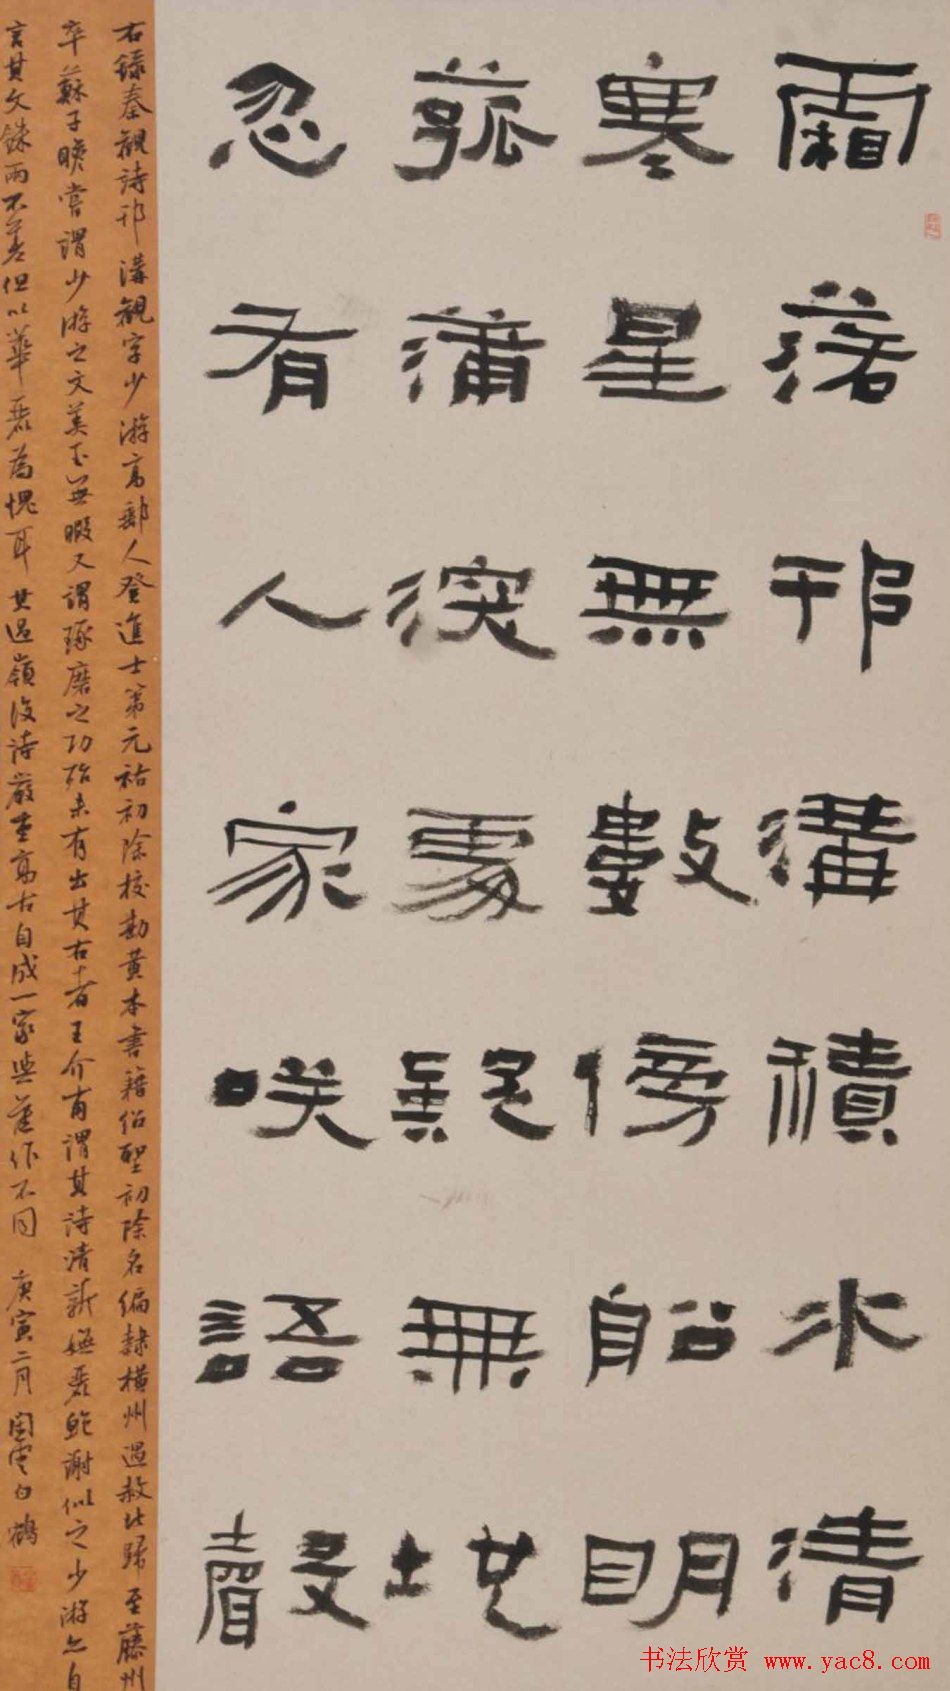 霜落邗溝積水清
寒星無數傍船明
菰蒲深處疑無地
忽有人家咲語聲
右錄秦觀詩邗溝觀字少游高郵人登進士第元祐初除校勘黃本書籍紹聖初除名編隸橫州過赦北歸至藤州
卒蘇子瞻嘗謂少游之文美玉無瑕又謂琢磨之功殆未有出其右者王介甫謂其詩清新嫵麗鮑謝似之少游亦自
言其文銖兩不差但以華麗為愧耳其過嶺後詩嚴重高古自成一家與舊作不同 庚寅二月 白鶴
书法欣赏 www.yac8.com